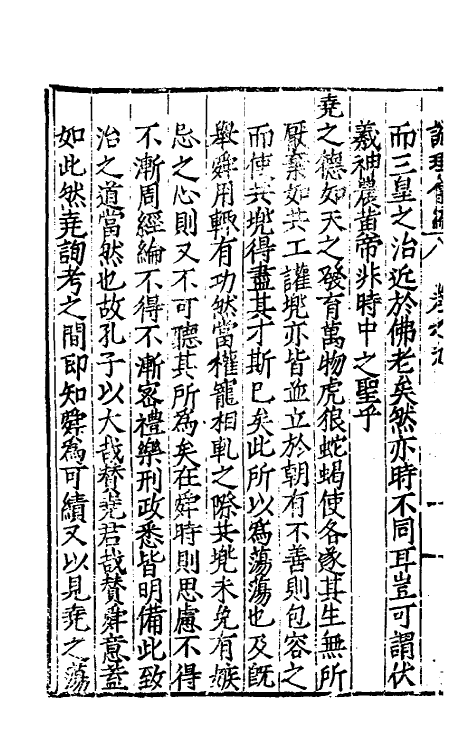 而三皇之治近於佛老矣然亦時不同耳豈可謂伏
羲神農黃帝非時中之聖乎
堯之德如天之發育萬物虎狼蛇蝎使各遂其生無所
厭棄如共工讙兜亦皆並立於朝有不善則包容之
而使共兜得盡其才斯巳矣此所以為蕩蕩也及旣
舉舜用輙有功然當權寵相軋之際共兜未免有嫉
忌之心則又不可聽其所為矣在舜時則思慮不得
不漸周經綸不得不漸密禮樂刑政悉皆明備此致
治之道當然也故孔子以大哉賛堯君哉賛舜意葢
如此然堯詢考之間即知舜為可績又以見堯之蕩